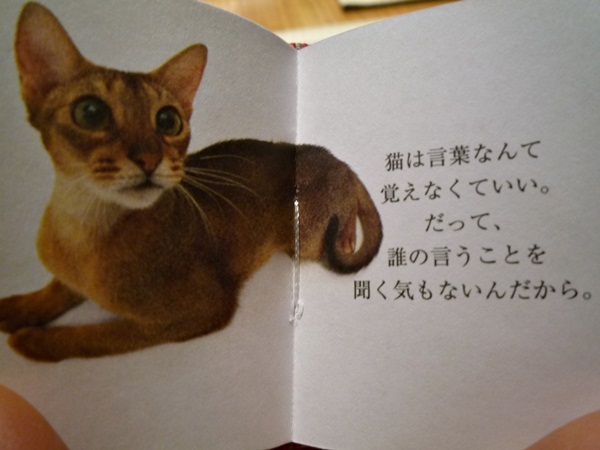 猫は言葉なんて
覚えなくていい。
だって、
誰の言うことを
聞く気もないんだから。